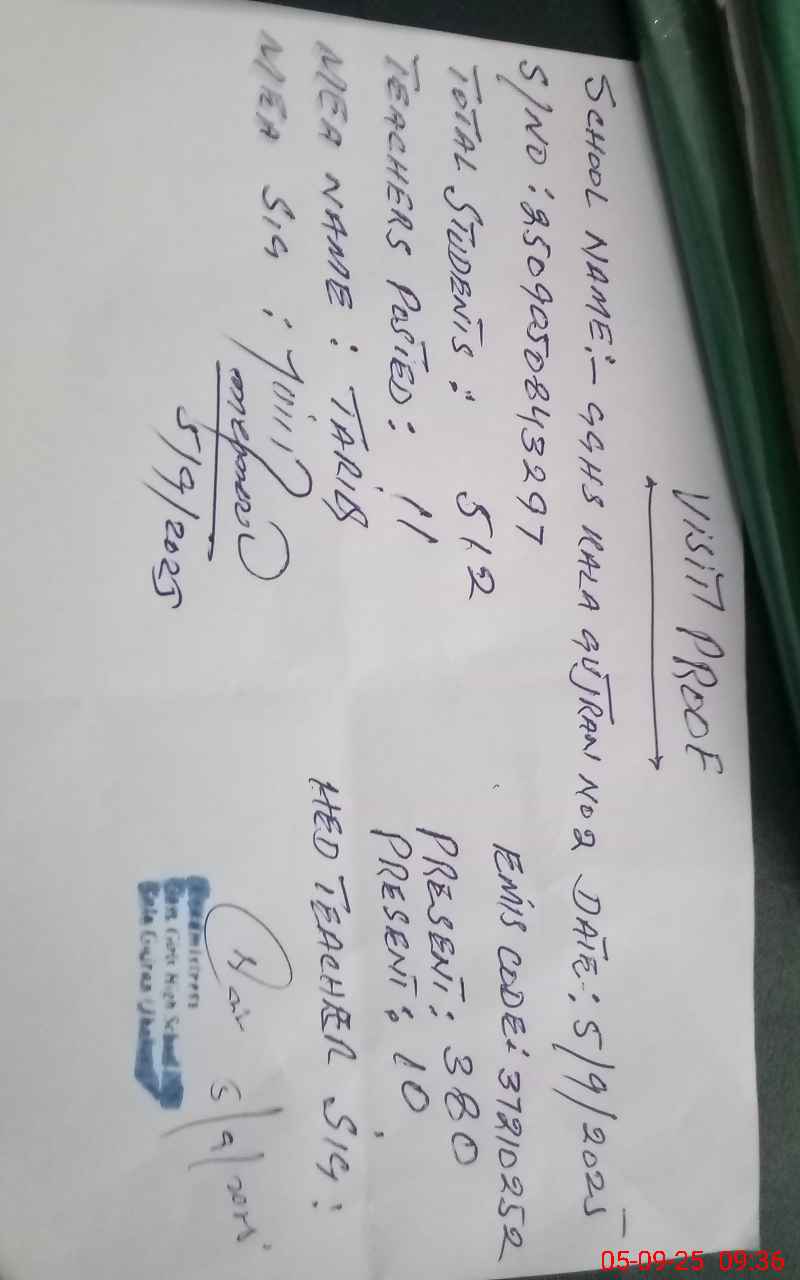 VISIT PROOF
SCHOOL NAME:- GGHS KALA GUJRAN NO2 DATE: 5/9/2025
S/NO: 2509050843297 EMIS CODE: 37210252
TOTAL STUDENTS: 512 PRESENT: 380
TEACHERS POSTED: 11 PRESENT: 10
MEA NAME: TARIQ HED TEACHER SIG:
MEA SIG:
5/9/2025
5/9/2025
Headmistress
Govt. Girls High School
Kala Gujran (Jhelum)
05-09-25 09:36